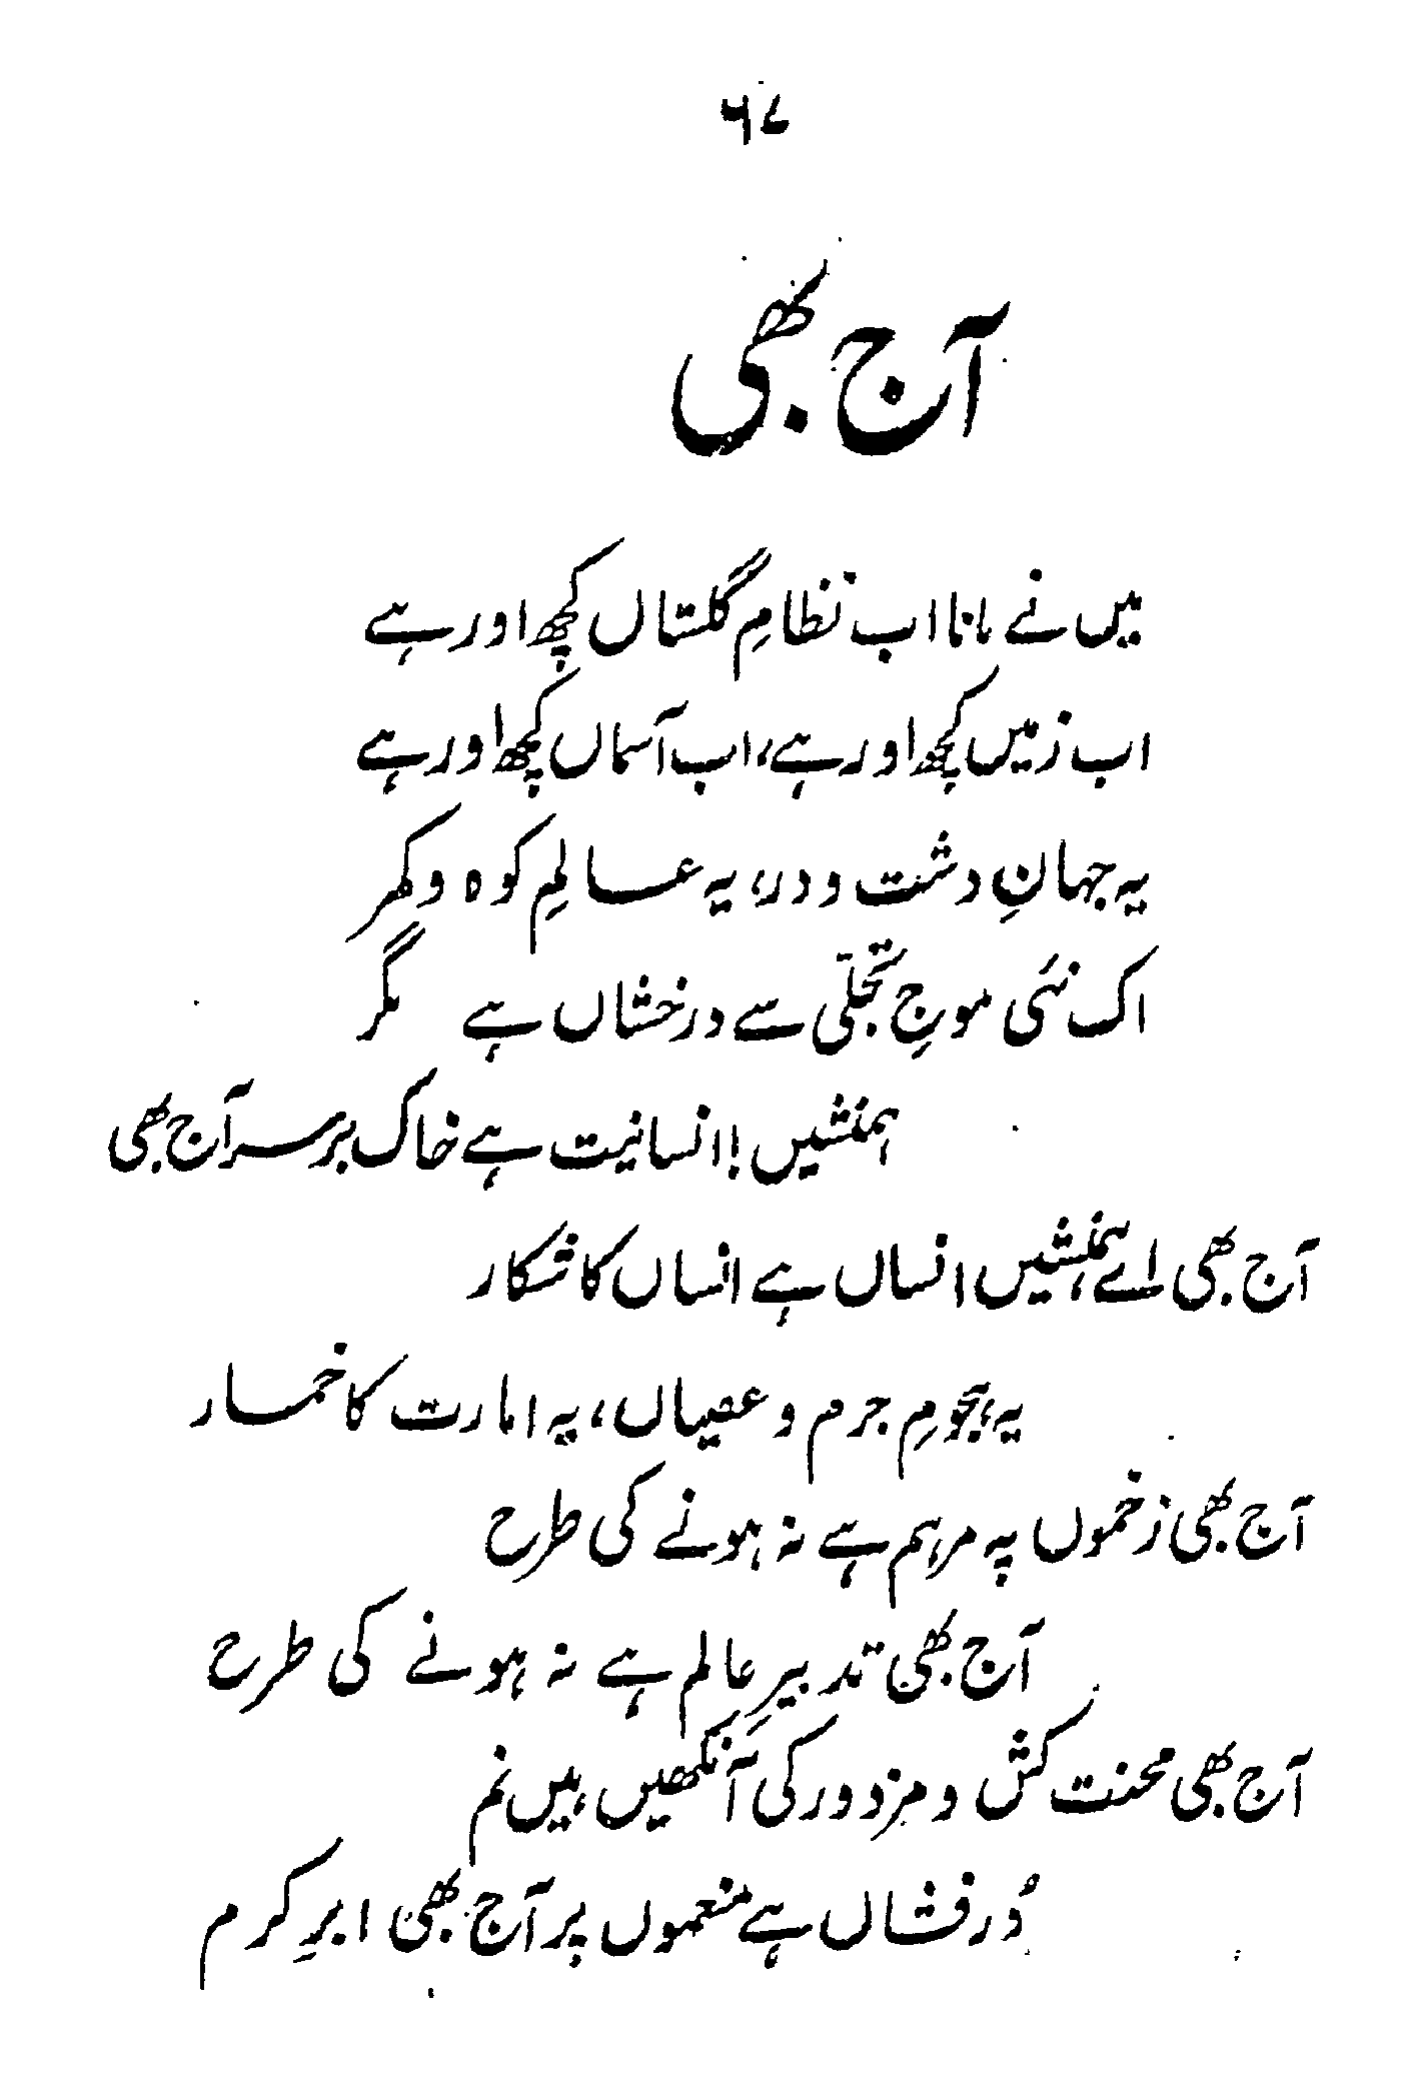 ۶۷
آج بھی
میں نے مانا اب نظامِ گلستاں کچھ اور ہے
اب زمیں کچھ اور ہے، اب آسماں کچھ اور ہے
یہ جہانِ دشت و در، یہ عالمِ کوہ و کمر
اک نئی موجِ تجلّی سے درخشاں ہے مگر
ہمنشیں! انسانیت ہے خاک بر سر آج بھی
آج بھی اے ہمنشیں انساں ہے انساں کا شکار
یہ ہجومِ جرم و عصیاں، یہ امارت کا خمار
آج بھی زخموں پہ مرہم ہے نہ ہونے کی طرح
آج بھی تدبیرِ عالم ہے نہ ہونے کی طرح
آج بھی محنت کش و مزدور کی آنکھیں ہیں نم
دُر فشاں ہے منعموں پر آج بھی ابرِ کرم